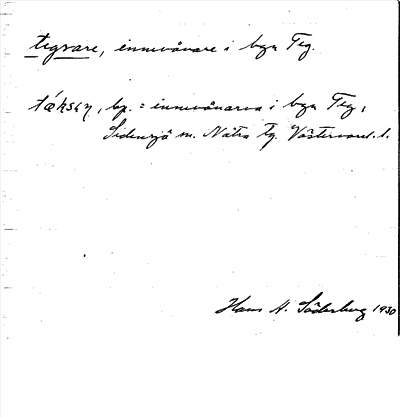 tegsare, innevånare i byn Teg.
tǽksaṇ, bp. = innevånarna i byn Teg,
Sidensjö sn. Nätra tg. Västernorrl. l.
Hans H. Söderberg 1930